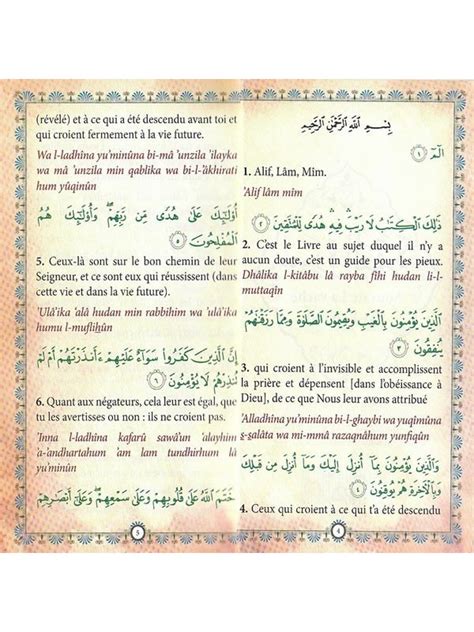 بِسْمِ اللَّهِ الرَّحْمَٰنِ الرَّحِيمِ
الٓمٓ ١
1. Alif, Lâm, Mîm.
'Alif lâm mîm
ذَٰلِكَ الْكِتَابُ لَا رَيْبَ ۛ فِيهِ ۛ هُدًى لِّلْمُتَّقِينَ ٢
2. C'est le Livre au sujet duquel il n'y a
aucun doute, c'est un guide pour les pieux.
Dhâlika l-kitâbu lâ rayba fîhi hudan li-l-
muttaqîn
الَّذِينَ يُؤْمِنُونَ بِالْغَيْبِ وَيُقِيمُونَ الصَّلَوٰةَ وَمِمَّا رَزَقْنَٰهُمْ
يُنفِقُونَ ٣
3. qui croient à l'invisible et accomplissent
la prière et dépensent [dans l'obéissance à
Dieu], de ce que Nous leur avons attribué
'Alladhîna yu'minûna bi-l-ghaybi wa yuqîmûna
ṣ-ṣalâta wa mi-mmâ razaqnâhum yunfiqûn
وَالَّذِينَ يُؤْمِنُونَ بِمَآ أُنزِلَ إِلَيْكَ وَمَآ أُنزِلَ مِن قَبْلِكَ
وَبِالْآخِرَةِ هُمْ يُوقِنُونَ ٤
4. Ceux qui croient à ce qui t'a été descendu
4
(révélé) et à ce qui a été descendu avant toi et
qui croient fermement à la vie future.
Wa l-ladhîna yu'minûna bi-mâ 'unzila 'ilayka
wa mâ 'unzila min qablika wa bi-l-'âkhirati
hum yûqinûn
أُوْلَٰٓئِكَ عَلَىٰ هُدًى مِّن رَّبِّهِمْ ۖ وَأُوْلَٰٓئِكَ هُمُ
الْمُفْلِحُونَ ٥
5. Ceux-là sont sur le bon chemin de leur
Seigneur, et ce sont eux qui réussissent (dans
cette vie et dans la vie future).
'Ulâ'ika 'alâ hudan min rabbihim wa 'ulâ'ika
humu l-mufliḥûn
إِنَّ الَّذِينَ كَفَرُوا سَوَآءٌ عَلَيْهِمْ ءَأَنذَرْتَهُمْ أَمْ لَمْ
تُنذِرْهُمْ لَا يُؤْمِنُونَ ٦
6. Quant aux négateurs, cela leur est égal, que
tu les avertisses ou non : ils ne croient pas.
'Inna l-ladhîna kafarû sawâ'un 'alayhim
'a-'andhartahum 'am lam tundhirhum lâ
yu'minûn
خَتَمَ اللَّهُ عَلَىٰ قُلُوبِهِمْ وَعَلَىٰ سَمْعِهِمْ ۖ وَعَلَىٰٓ أَبْصَٰرِهِمْ
5